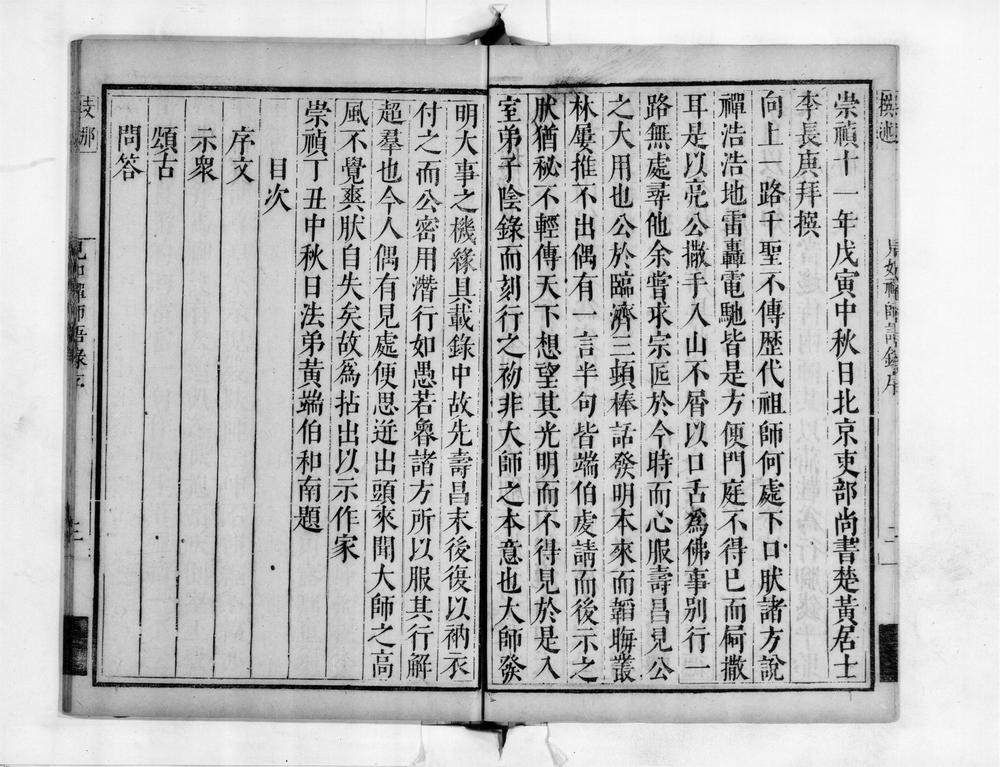 撰述
崇禎十一年戊寅中秋日北京吏部尚書楚黃居士
李長庚拜撰
向上一路千聖不傳歷代祖師何處下口肰諸方說
禪浩浩地雷轟電馳皆是方便門庭不得已而屙撒
耳是以亮公撒手入山不屑以口舌為佛事別行一
路無處尋他余嘗求宗匠於今時而心服壽昌見公
之大用也公於臨濟三頓棒話發明本來而韜晦叢
林屢推不出偶有一言半句皆端伯虔請而後示之
肰猶秘不輕傳天下想望其光明而不得見於是入
室弟子陰錄而刻行之初非大師之本意也大師發
明大事之機緣具載錄中故先壽昌末後復以衲衣
付之而公密用潛行如愚若魯諸方所以服其行解
超羣也今人偶有見處便思迸出頭來聞大師之高
風不覺爽肰自失矣故為拈出以示作家
崇禎丁丑中秋日法弟黃端伯和南題
目次
序文
示眾
頌古
問答
支那